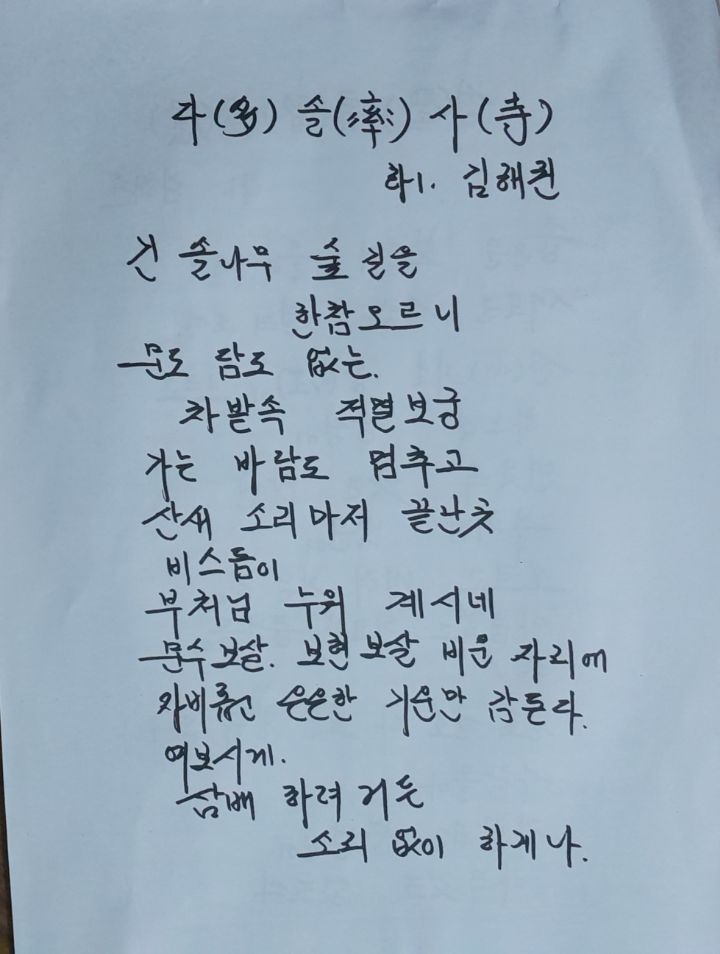 다(多) 솔(率) 사(寺)
하1. 김해권
긴 솔나무 숲 길을
한참오르니
문도 담도 없는.
차밭속 적멸보궁
가는 바람도 멈추고
산새 소리마저 끝난곳
비스듬이
부처님 누워 계시네
문수보살. 보현보살 비운 자리에
자비로운 은은한 기운만 감돈다.
여보시게.
삼배 하려거든
소리 없이 하게나.